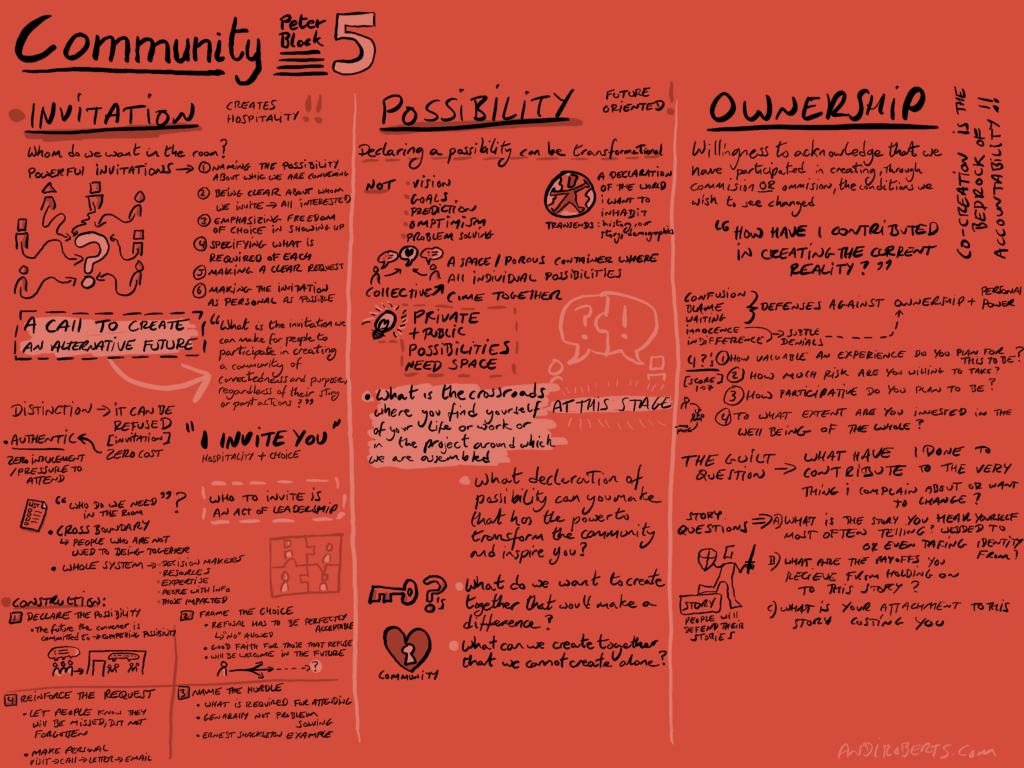 Community
Peter
Block
5
INVITATION
CREATES
HOSPITALITY !!
Whom do we want in the room?
POWERFUL INVITATIONS →
① NAMING THE POSSIBILITY
ABOUT WHICH WE ARE CONVENING
② BEING CLEAR ABOUT WHOM
WE INVITE → ALL INTERESTED
③ EMPHASIZING FREEDOM
OF CHOICE IN SHOWING UP
④ SPECIFYING WHAT IS
REQUIRED OF EACH
⑤ MAKING A CLEAR REQUEST
⑥ MAKING THE INVITATION
AS PERSONAL AS POSSIBLE
?
A CALL TO CREATE
AN ALTERNATIVE FUTURE
"What is the invitation we
can make for people to
participate in creating
a community of
connectedness and purpose,
regardless of their story
or past actions?"
DISTINCTION → IT CAN BE
REFUSED
[invitation]
ZERO COST
• AUTHENTIC
ZERO INDUCEMENT
/ PRESSURE TO
ATTEND
"I INVITE YOU"
HOSPITALITY + CHOICE
LIST
• "WHO DO WE NEED" ?
IN THE ROOM
• CROSS BOUNDARY
↳ PEOPLE WHO ARE NOT
USED TO BEING TOGETHER
• WHOLE SYSTEM → • DECISION MAKERS
• RESOURCES
• EXPERTISE
• PEOPLE WITH INFO
• THOSE IMPACTED
WHO TO INVITE IS
AN ACT OF LEADERSHIP
CONSTRUCTION:
1 DECLARE THE POSSIBILITY
• The future the convener is
committed to → COMPELLING POSSIBILITY
2 FRAME THE CHOICE
• REFUSAL HAS TO BE PERFECTLY
ACCEPTABLE
↳ "NO" ALLOWED
• GOOD FAITH FOR THOSE THAT REFUSE
• WILL BE WELCOME IN THE FUTURE
?
4 REINFORCE THE REQUEST
• LET PEOPLE KNOW THEY
WILL BE MISSED, BUT NOT
FORGOTTEN
• MAKE PERSONAL
VISIT → CALL → LETTER → EMAIL
3 NAME THE HURDLE
• WHAT IS REQUIRED FOR ATTENDING
• GENARALLY NOT PROBLEM
SOLVING
• ERNEST SHACKLETON EXAMPLE
POSSIBILITY
FUTURE
ORIENTED !
Declaring a possibility can be transformational
NOT
• VISION
• GOALS
• PREDICTION
• OMPTIMISM
• PROBLEM SOLVING
A DECLARATION
OF THE WORLD
I WANT TO
INHABIT
TRANSENDS: history, our
story, demographics
COLLECTIVE
A SPACE / POROUS CONTAINER WHERE
ALL INDIVIDUAL POSSIBILITIES
COME TOGETHER
PRIVATE
+ PUBLIC
POSSIBILITIES
NEED SPACE
?!
• What is the crossroads
where you find yourself
of your life or work or
in the project around which
we are assembled
AT THIS STAGE
• What declaration of
possibility can you make
that has the power to
transform the community
and inspire you?
?'s
• What do we want to create
together that would make a
difference?
• What can we create together
that we cannot create alone?
COMMUNITY
OWNERSHIP
CO-CREATION IS THE
BEDROCK OF
ACCOUNTABILITY !!
Willingness to acknowledge that we
have participated in creating, through
commision OR ommision, the conditions we
wish to see changed
"HOW HAVE I CONTRIBUTED
IN CREATING THE CURRENT
REALITY?"
CONFUSION
BLAME
WAITING
INNOCENCE
INDIFFERENCE
DEFENSES AGAINST OWNERSHIP + PERSONAL
POWER
SUBTLE
DENIALS
4 ?'s
[SCORE]
1→7
① HOW VALUABLE AN EXPERIENCE DO YOU PLAN FOR
THIS TO BE?
② HOW MUCH RISK ARE YOU WILLING TO TAKE?
③ HOW PARTICIPATIVE DO YOU PLAN TO BE?
④ TO WHAT EXTENT ARE YOU INVESTED IN THE
WELL BEING OF THE WHOLE?
THE GUILT
QUESTION →
WHAT HAVE I DONE TO
CONTRIBUTE TO THE VERY
THING I COMPLAIN ABOUT OR WANT
TO CHANGE?
STORY
QUESTIONS →
A) WHAT IS THE STORY YOU HEAR YOURSELF
MOST OFTEN TELLING? WEDDED TO
OR EVEN TAKING IDENTITY
FROM?
B) WHAT ARE THE PAYOFFS YOU
RECIEVE FROM HOLDING ON
TO THIS STORY?
C) WHAT IS YOUR ATTACHMENT TO THIS
STORY COSTING YOU
STORY
PEOPLE WILL
DEFEND THEIR
STORIES
ANDIROBERTS.COM